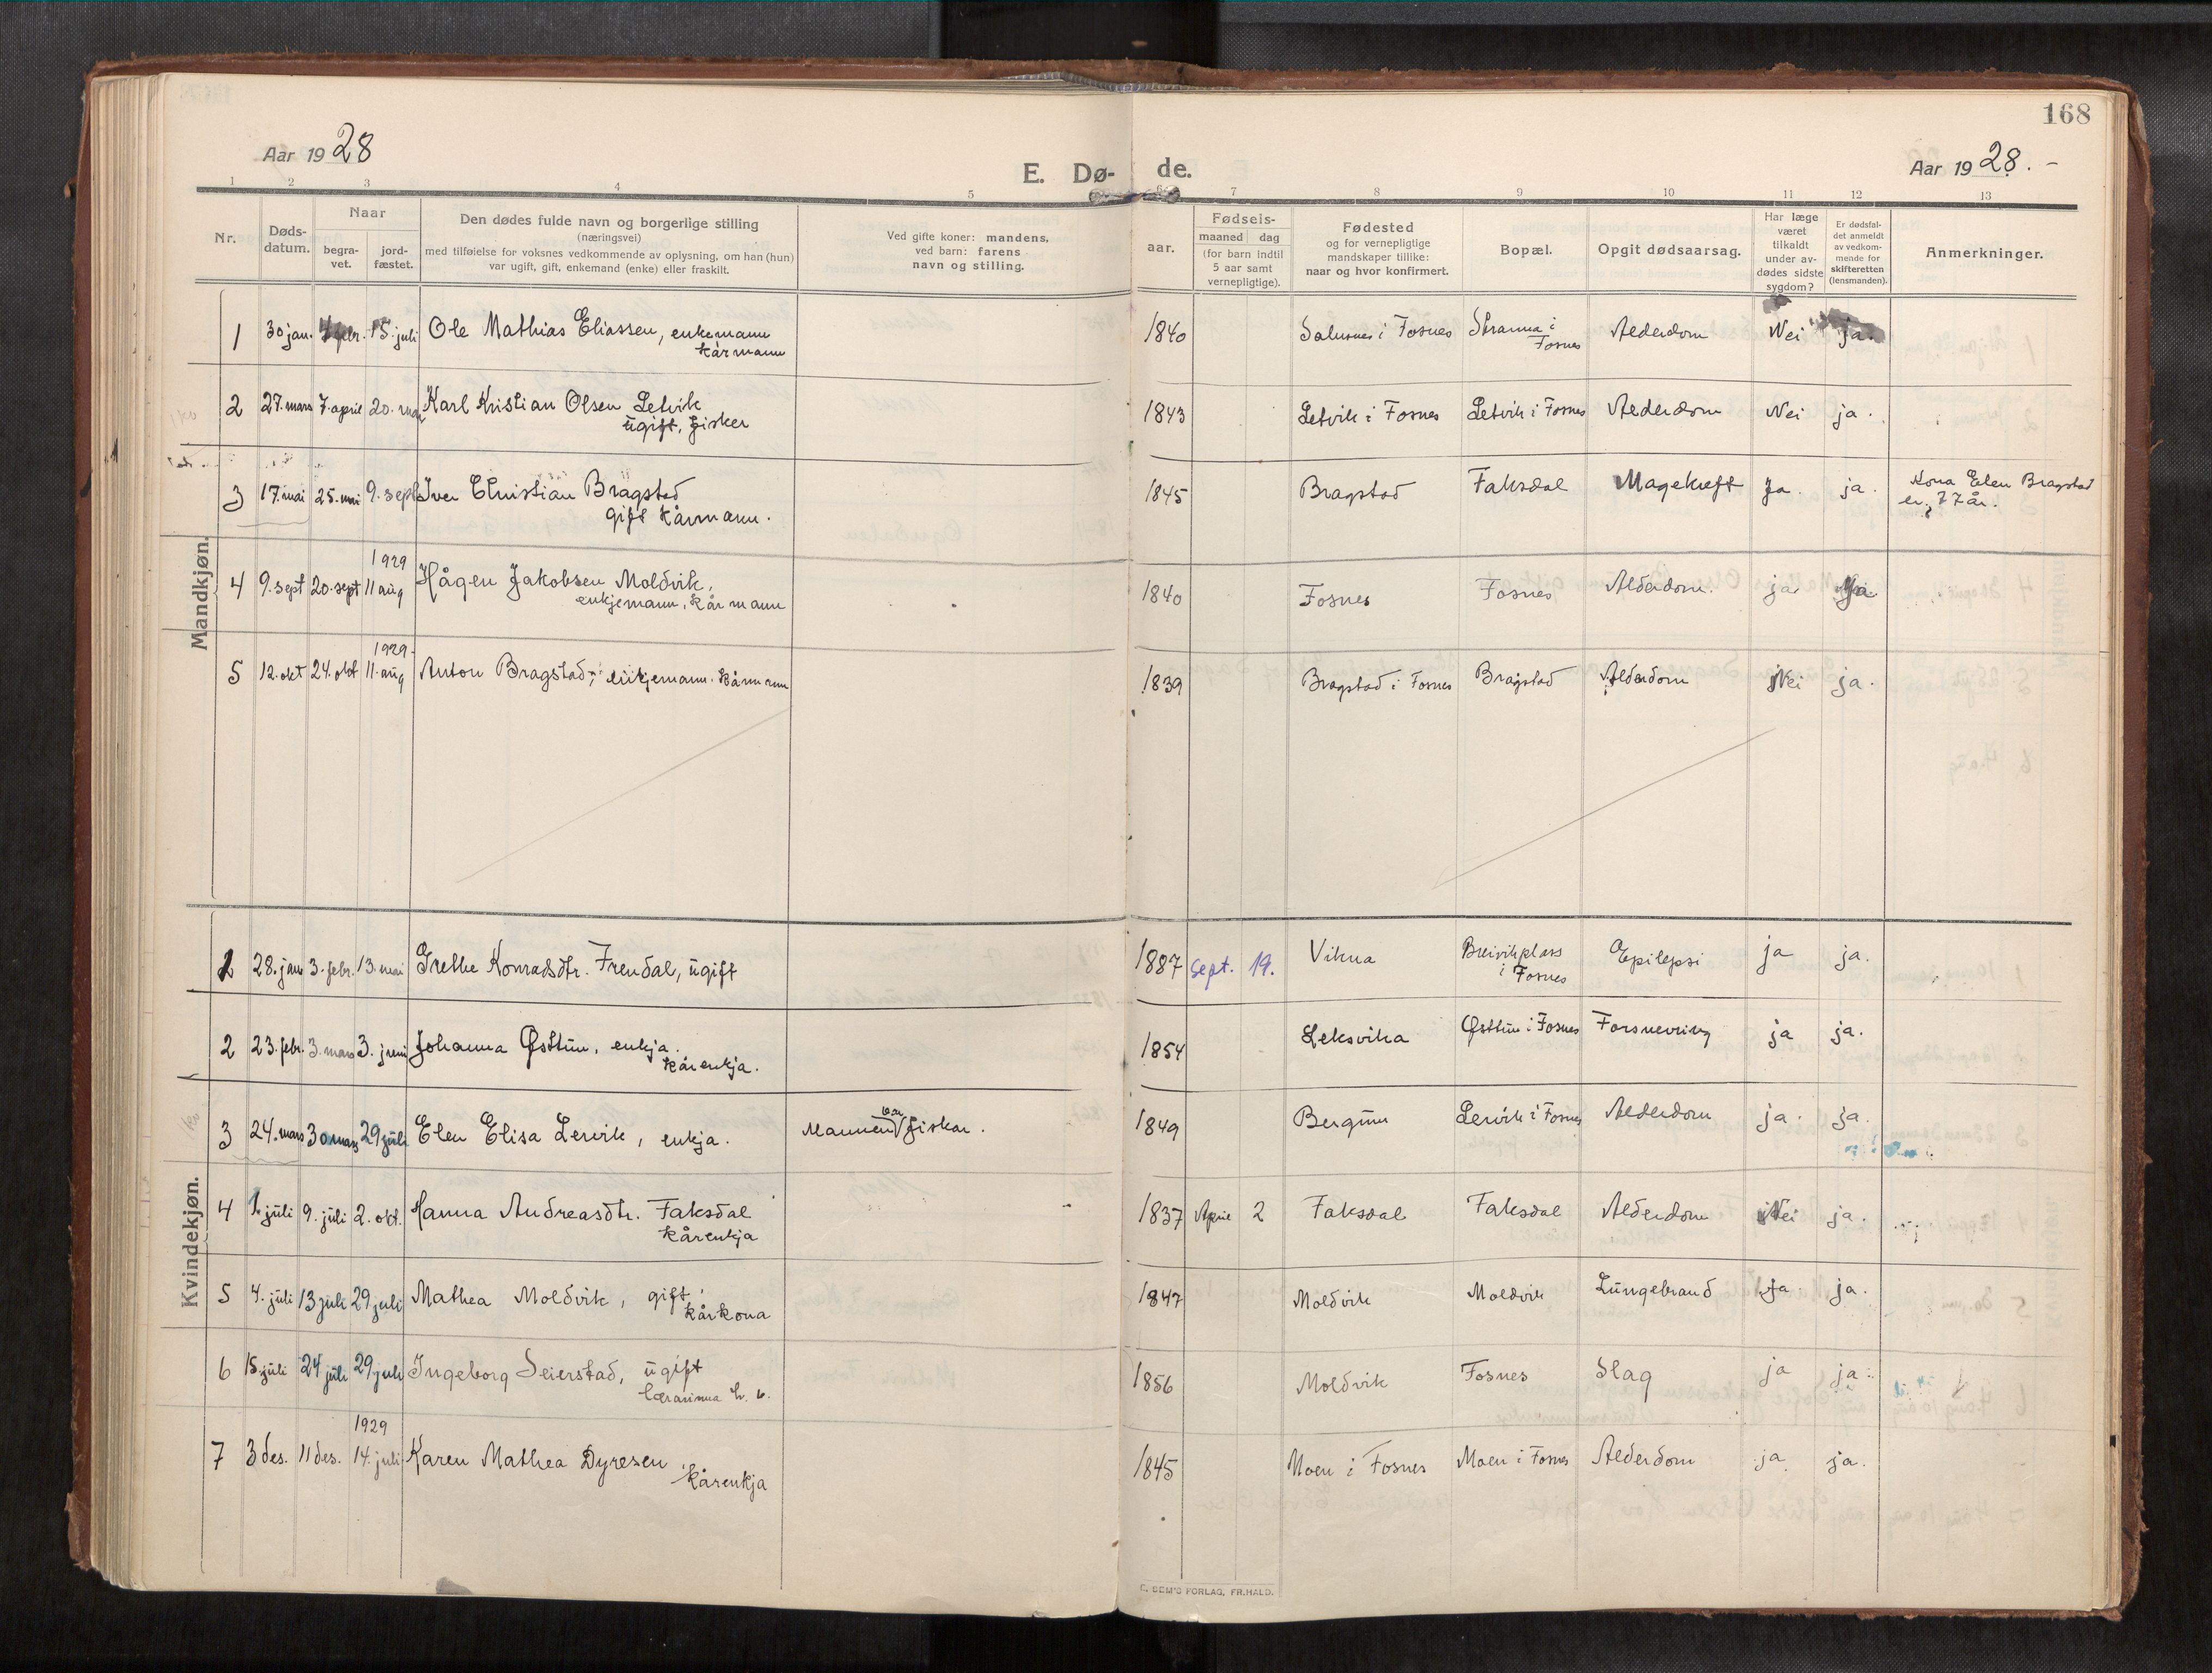 168
Aar 1928
E. Dø-de.
Aar 1928.-
1 2 3 4 5 6 7 8 9 10 11 12 13
Nr.
Døds-
datum.
Naar
begra-
vet.
jord-
fæstet.
Den dødes fulde navn og borgerlige stilling
(næringsvei)
med tilføielse for voksnes vedkommende av oplysning, om han (hun)
var ugift, gift, enkemand (enke) eller fraskilt.
Ved gifte koner: mandens,
ved barn: farens
navn og stilling.
Fødsels-
aar.
maaned dag
(for barn indtil
5 aar samt
vernepligtige).
Fødested
og for vernepligtige
mandskaper tillike:
naar og hvor konfirmert.
Bopæl.
Opgit dødsaarsag.
Har læge
været
tilkaldt
under av-
dødes sidste
sygdom?
Er dødsfal-
det anmeldt
av vedkom-
mende for
skifteretten
(lensmanden).
Anmerkninger.
Mandkjøn.
1 30 jan. 4 febr. 15. juli Ole Mathias Eliassen, enkemann 1840 Salsnes i Fosnes Stranna i Alderdom Nei ja.
kårmann Fosnes
2 27. mars 7. april 20. mai Karl Kristian Olsen Letvik 1843 Letvik i Fosnes Letvik i Fosnes Alderdom Nei ja.
ugift, fisker
3 17. mai 25. mai 9. sept Iver Christian Bragstad 1845 Bragstad Faksdal Magekreft Ja. ja. Kona Elen Bragstad
gift kårmann. er 77 år.
1929
4 9. sept 20. sept 11 aug Hågen Jakobsen Moldvik, 1840 Fosnes Fosnes Alderdom. ja. Ja
enkjemann, kårmann
1929
5 12. okt 24. okt 11. aug Anton Bragstad, enkjemann. kårmann 1839 Bragstad i Fosnes Bragstad Alderdom Nei ja.
Kvindekjøn.
1 28. jan 3. febr. 13. mai Grethe Konradsdtr. Frendal, ugift 1887 Sept. 19. Vikna Breivikplass Epilepsi ja ja.
i Fosnes
2 23. febr. 3. mars 3. juni Johanna Østtun, enkja. 1854 Leksvika Østtun i Fosnes Forsnevring ja ja.
kårenkja.
3 24. mars 30 mars 29 juli Elen Elisa Lervik, enkja. Mannen var fiskar. 1849 Bergun Lervik i Fosnes Alderdom ja. ja.
4 1. juli 9. juli 2. okt. Hanna Andreasdtr. Faksdal 1837 April 2 Faksdal Faksdal Alderdom Nei ja.
kårenkja
5 4. juli 13 juli 29 juli Mathea Moldvik, gift, 1847 Moldvik Moldvik Lungebrand Ja. ja.
kårkona
6 15. juli 24 juli 29 juli Ingeborg Seierstad, ugift 1856 Moldvik Fosnes Slag ja ja.
1929
7 3 des. 11 des. 14. juli Karen Mathea Dyresen 1845 Moen i Fosnes Moen i Fosnes Alderdom ja ja.
kårenkja
FORLAG, FR.HALD.